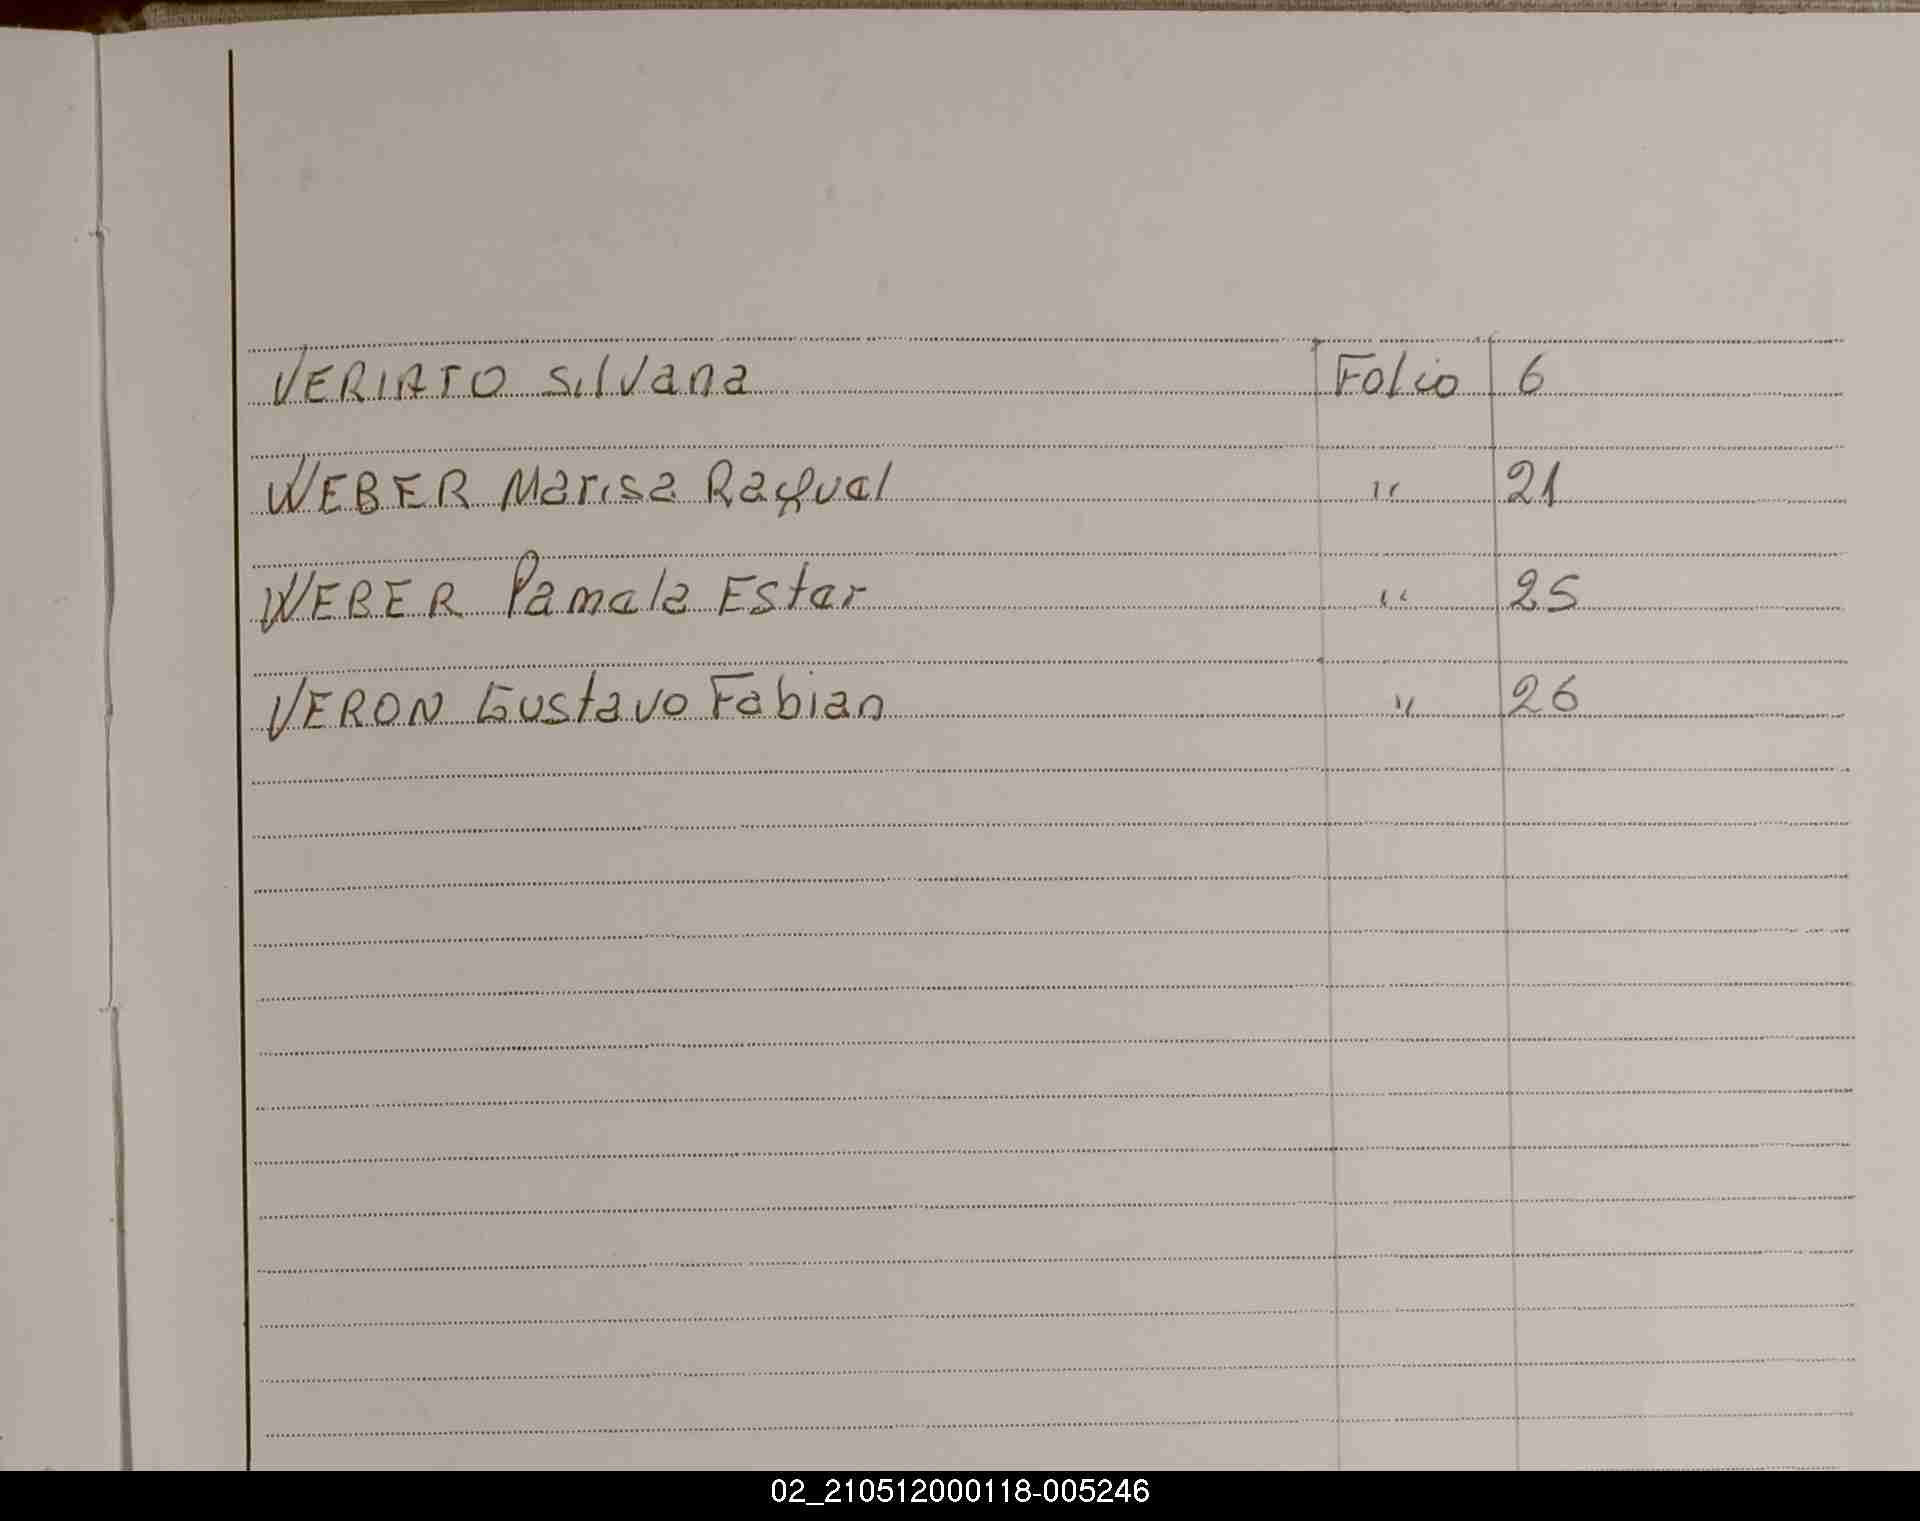 VERIATO Silvana Folio 6
WEBER Marisa Raquel " 21
WEBER Pamela Ester " 25
VERON Gustavo Fabian " 26
02_210512000118-005246